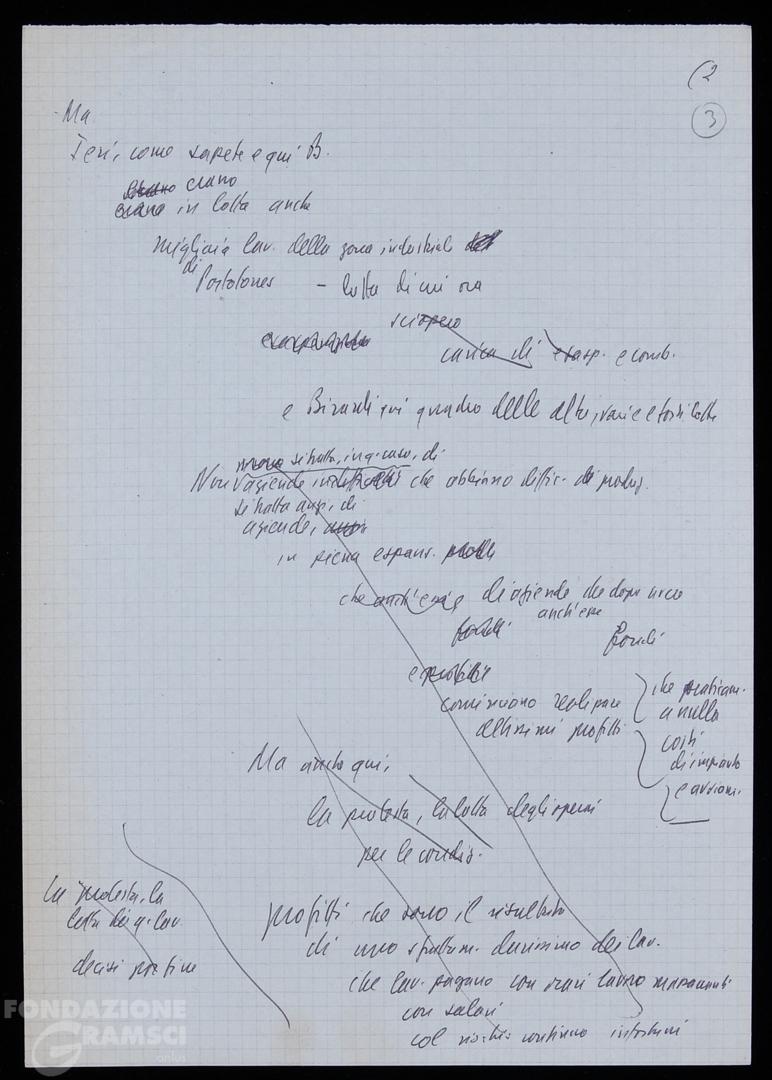 (2
3
Ma
Ieri, come sapete e qui B.
erano
erano in lotta anche
migliaia lav. della zona industrial
di
Portotorres - lotta di un ora
sciopero
carica di esasp. e comb.
e qui quadro delle altre, varie e forti lotte
si tratta, in q. caso, di
Non aziende che abbiano diffic. di produz.
si tratta anzi, di
aziende,
in piena espans.
che anch'esse di aziende che dopo
anch'esse
fondi
cominciano realizzare
altissimi profitti
che praticam.
a nulla
costi
di impianto
e avviam.
Ma anche qui,
la protesta, la lotta degli operai
per le condiz.
La protesta, la
lotta dei q. lav.
decisi por fine
profitti che sono il risultato
di uno sfruttam. durissimo dei lav.
che lav. pagano con orari lavoro massacranti
con salari
col rischio continuo infortuni
FONDAZIONE
GRAMSCI
onlus